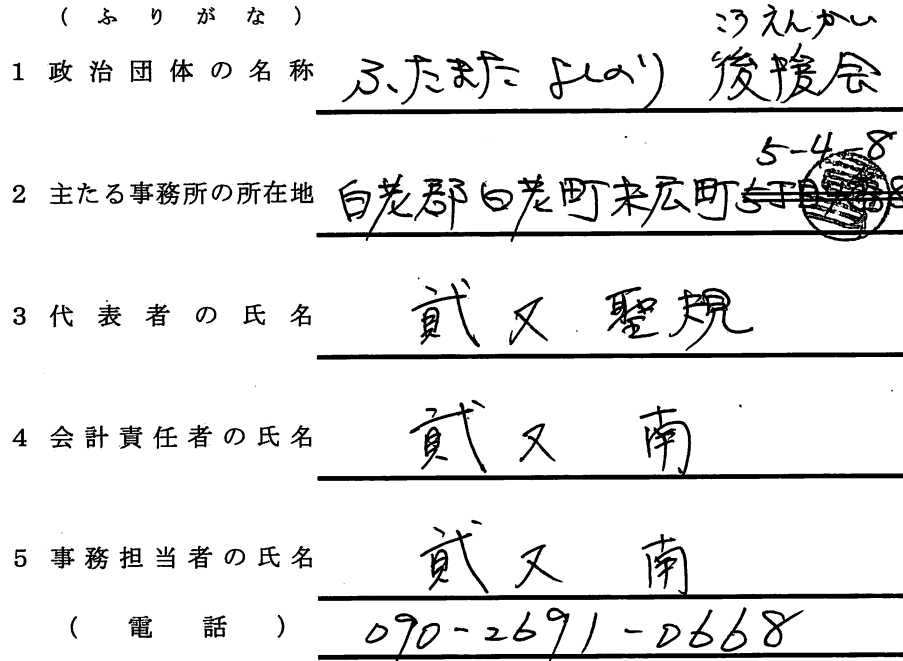 (ふりがな) こうえんかい
1 政治団体の名称 ふたまた よしのり 後援会
5-4-8
2 主たる事務所の所在地 白老郡白老町末広町
3 代表者の氏名 貮又 聖規
4 会計責任者の氏名 貮又 南
5 事務担当者の氏名 貮又 南
(電話) 090-2691-0668